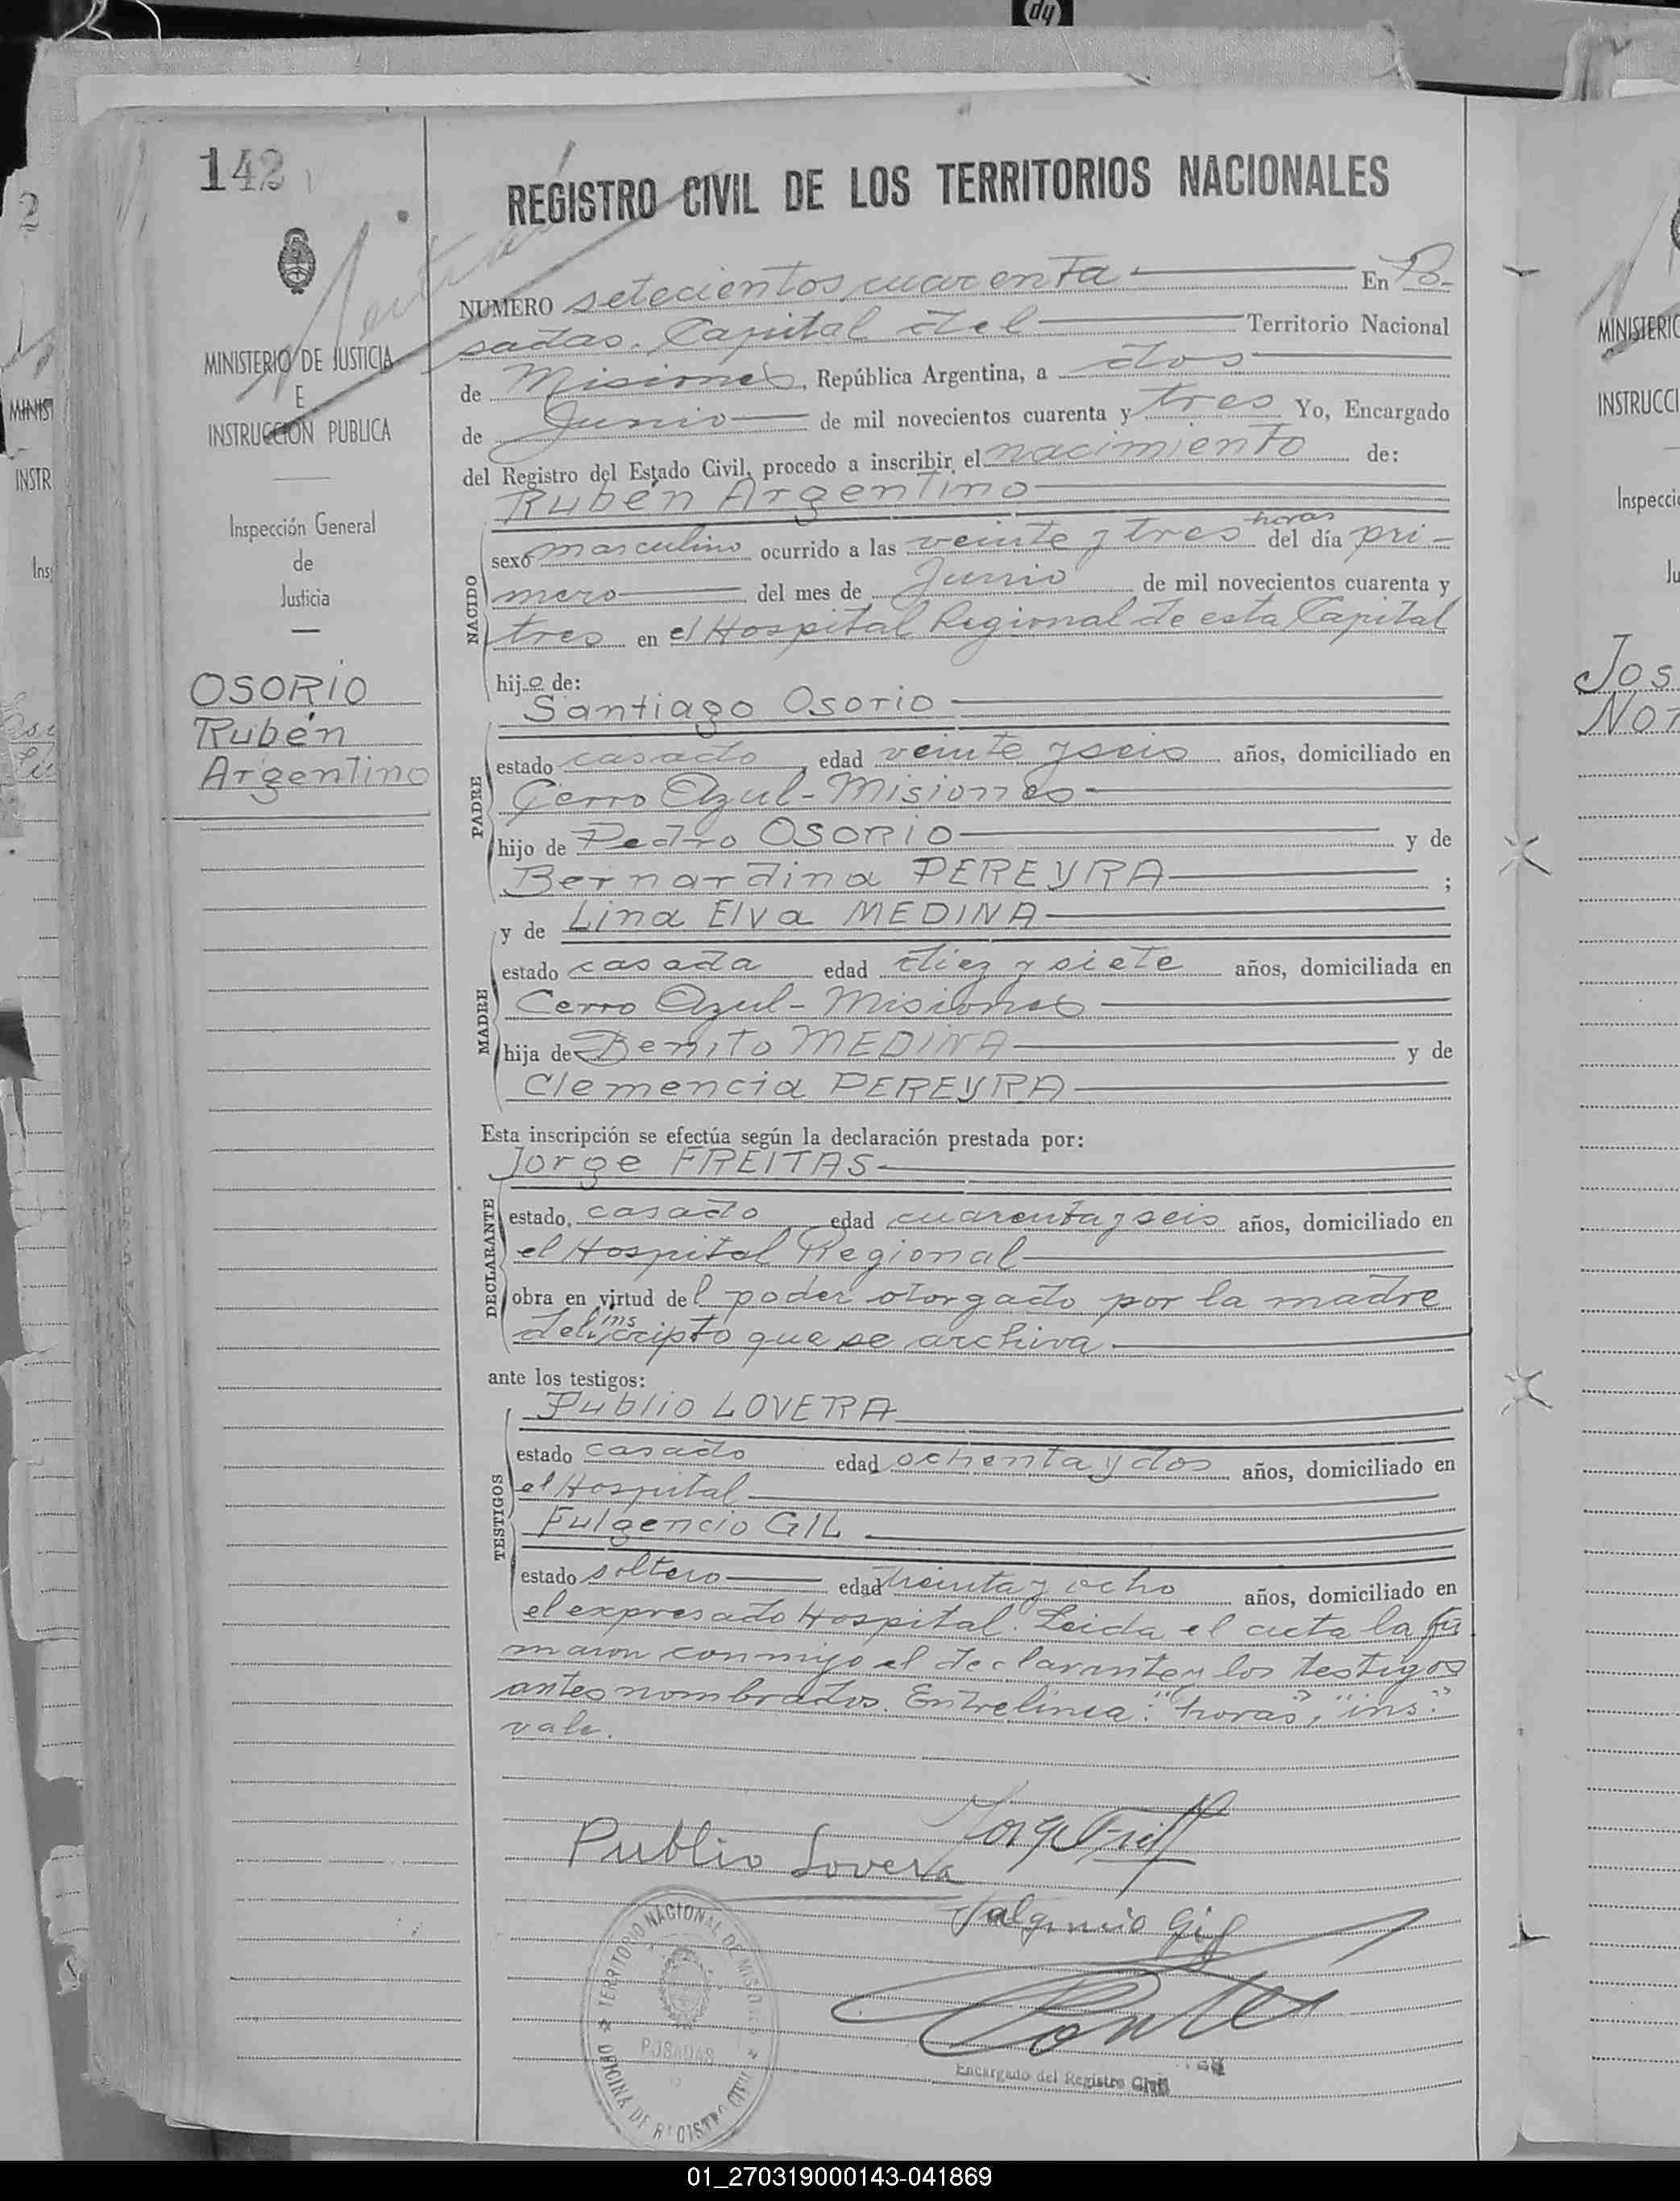 dy
142
REGISTRO CIVIL DE LOS TERRITORIOS NACIONALES
MINISTERIO DE JUSTICIA
E
INSTRUCCION PUBLICA
Inspección General
de
Justicia
OSORIO
Rubén
Argentino
NUMERO setecientos cuarenta En Po-
sadas. Capital del Territorio Nacional
de Misiones, República Argentina, a dos
de Junio de mil novecientos cuarenta y tres Yo, Encargado
del Registro del Estado Civil, procedo a inscribir el nacimiento de:
Rubén Argentino
NACIDO
horas
sexo masculino ocurrido a las veinte y tres del día pri-
mero del mes de Junio de mil novecientos cuarenta y
tres en el Hospital Regional de esta Capital
hijo de:
Santiago Osorio
PADRE
estado casado, edad veinte y seis años, domiciliado en
Cerro Azul - Misiones
hijo de Pedro OSORIO y de
Bernardina PEREYRA ;
y de Lina Elva MEDINA
MADRE
estado casada edad diez y siete años, domiciliada en
Cerro Azul - Misiones
hija de Benito MEDINA y de
Clemencia PEREYRA
Esta inscripción se efectúa según la declaración prestada por:
Jorge FREITAS
DECLARANTE
estado, casado edad cuarenta y seis años, domiciliado en
el Hospital Regional
obra en virtud del poder otorgado por la madre
ins
del cripto que se archiva
ante los testigos:
Publio LOVERA
TESTIGOS
estado casado edad ochenta y dos años, domiciliado en
el Hospital
Fulgencio GIL
estado soltero edad treinta y ocho años, domiciliado en
el expresado Hospital. Leida el acta la fir
maron conmigo el declarante y los testigos
antes nombrados. Entrelínea: "horas", "ins".
vale.
Publio Lovera
Fulgencio Gil
TERRITORIO NACIONAL DE MISIONES
POSADAS
OFICINA DE REGISTRO CIVIL
Encargado del Registro Civil
2
MINIS
INSTR
Ins
MINISTERIO
INSTRUCCI
Inspecció
Ju
Jos
NOT
01_270319000143-041869